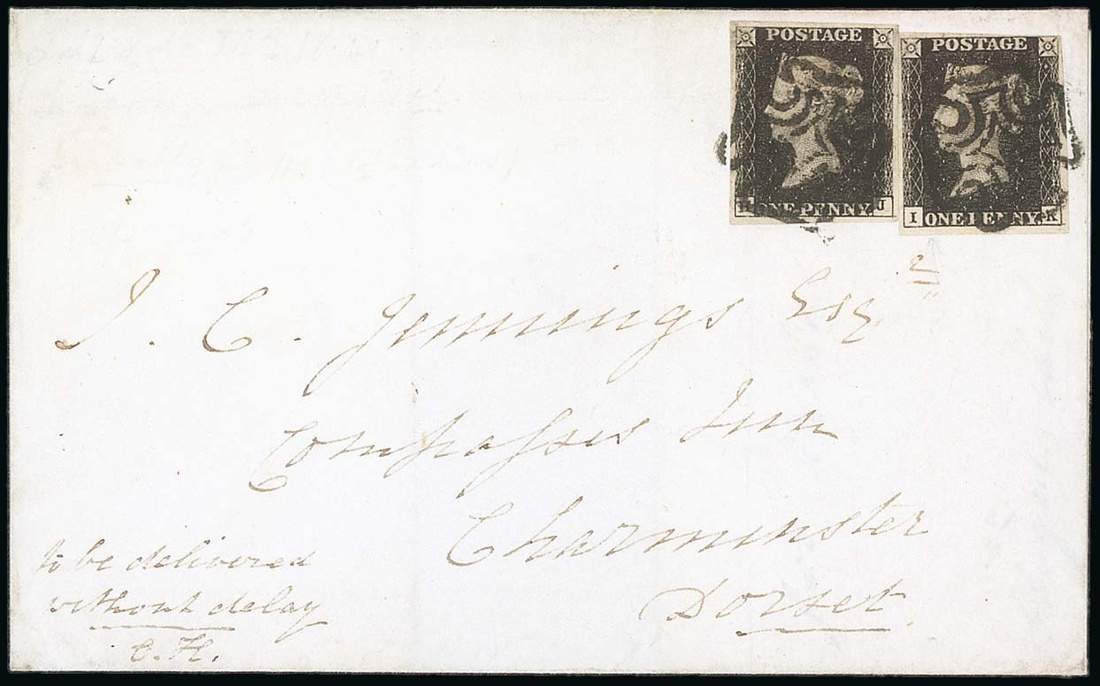 POSTAGE
ONE PENNY.
J
POSTAGE
I ONE PENNY. K
2
J. C. Jennings Esq
Compasses Inn
Charminster
Dorset
to be delivered
without delay
C. H.